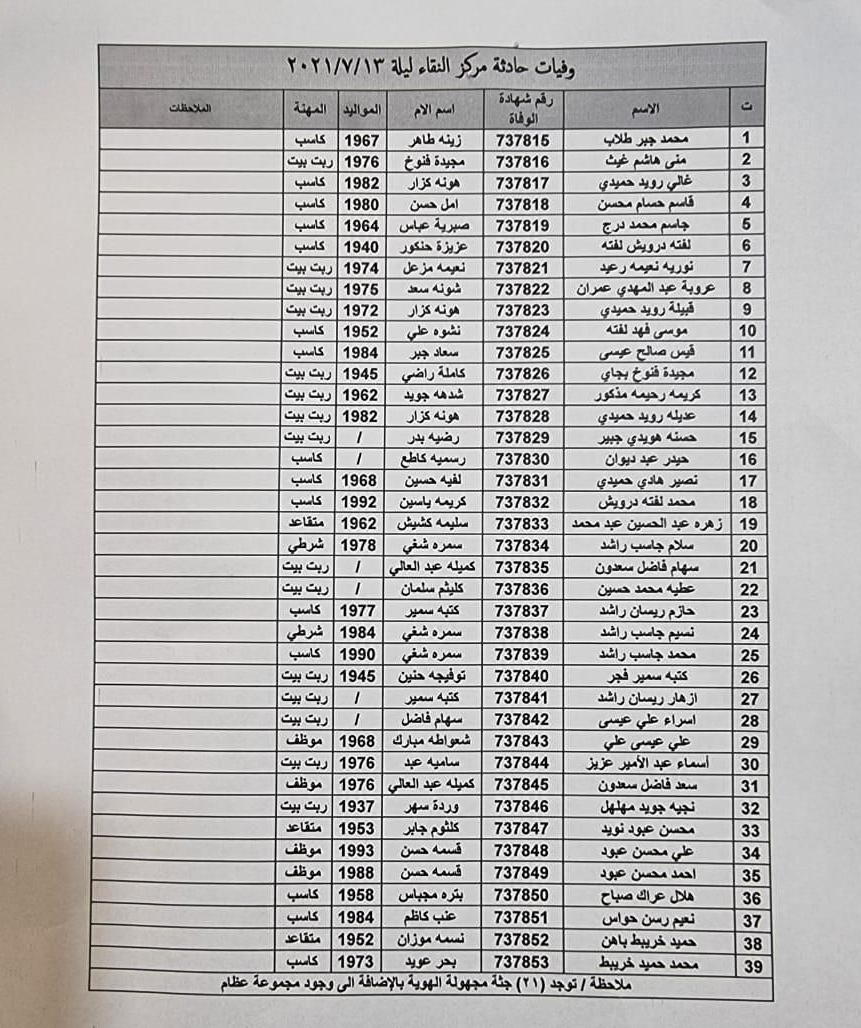 وفيات حادثة مركز النقاء ليلة ٢٠٢١/٧/١٣
ت الاسم رقم شهادة الوفاة اسم الام المواليد المهنة الملاحظات
1 محمد جبر طلاب 737815 زينه طاهر 1967 كاسب
2 منى هاشم غيث 737816 مجيدة فنوخ 1976 ربت بيت
3 غالي رويد حميدي 737817 هونه كزار 1982 كاسب
4 قاسم حسام محسن 737818 امل حسن 1980 كاسب
5 جاسم محمد درج 737819 صبرية عباس 1964 كاسب
6 لفته درويش لفته 737820 عزيزة حنكور 1940 كاسب
7 نوريه نعيمه رعيد 737821 نعيمه مزعل 1974 ربت بيت
8 عروبة عبد المهدي عمران 737822 شونه سعد 1975 ربت بيت
9 قبيلة رويد حميدي 737823 هونه كزار 1972 ربت بيت
10 موسى فهد لفته 737824 نشوه علي 1952 كاسب
11 قيس صالح عيسى 737825 سعاد جبر 1984 كاسب
12 مجيدة فنوخ بجاي 737826 كاملة راضي 1945 ربت بيت
13 كريمه رحيمه مذكور 737827 شدهه جويد 1962 ربت بيت
14 عديله رويد حميدي 737828 هونه كزار 1982 ربت بيت
15 حسنه هويدي جبير 737829 رضيه بدر / ربت بيت
16 حيدر عبد ديوان 737830 رسميه كاطع / كاسب
17 نصير هادي حميدي 737831 لفيه حسين 1968 كاسب
18 محمد لفته درويش 737832 كريمه ياسين 1992 كاسب
19 زهره عبد الحسين عبد محمد 737833 سليمه كشيش 1962 متقاعد
20 سلام جاسب راشد 737834 سمره شغي 1978 شرطي
21 سهام فاضل سعدون 737835 كميله عبد العالي / ربت بيت
22 عطيه محمد حسين 737836 كليثم سلمان / ربت بيت
23 حازم ريسان راشد 737837 كتبه سمير 1977 كاسب
24 نسيم جاسب راشد 737838 سمره شغي 1984 شرطي
25 محمد جاسب راشد 737839 سمره شغي 1990 كاسب
26 كتبه سمير فجر 737840 توفيجه حنين 1945 ربت بيت
27 ازهار ريسان راشد 737841 كتبه سمير / ربت بيت
28 اسراء علي عيسى 737842 سهام فاضل / ربت بيت
29 علي عيسى علي 737843 شعواطه مبارك 1968 موظف
30 أسماء عبد الأمير عزيز 737844 ساميه عبد 1976 ربت بيت
31 سعد فاضل سعدون 737845 كميله عبد العالي 1976 موظف
32 نجيه جويد مهلهل 737846 وردة سهر 1937 ربت بيت
33 محسن عبود نويد 737847 كلثوم جابر 1953 متقاعد
34 علي محسن عبود 737848 قسمه حسن 1993 موظف
35 احمد محسن عبود 737849 قسمه حسن 1988 موظف
36 هلال عراك صباح 737850 بتره مجباس 1958 كاسب
37 نعيم رسن حواس 737851 عنب كاظم 1984 كاسب
38 حميد خريبط باهن 737852 نسمه موزان 1952 متقاعد
39 محمد حميد خريبط 737853 بحر عويد 1973 كاسب
ملاحظة / توجد (٢١) جثة مجهولة الهوية بالإضافة الى وجود مجموعة عظام